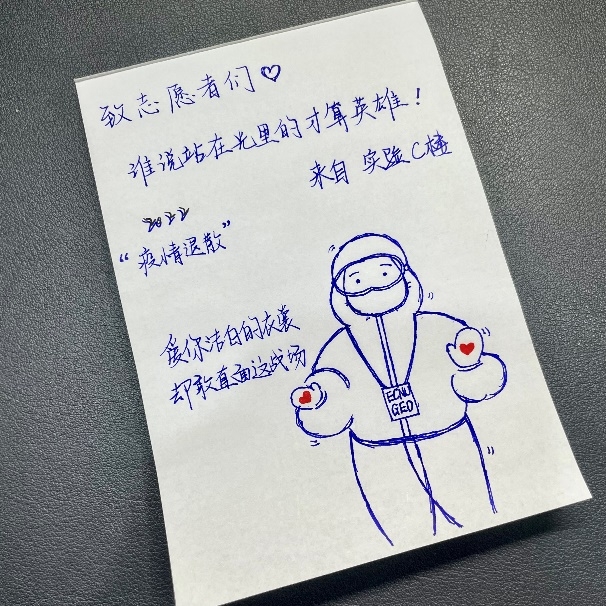 致志愿者们♡
谁说站在光里的才算英雄！
来自 实验C楼
2022
“疫情退散”
爱你洁白的衣裳
却敢直面这战场
ECNU
GEO